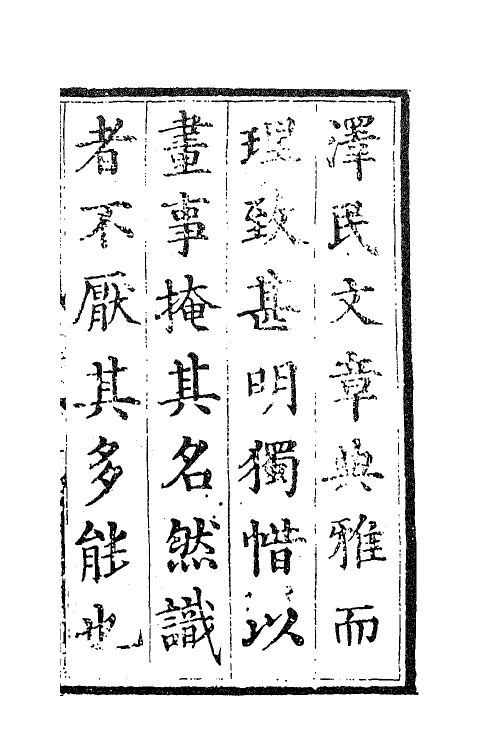 澤民文章典雅而
理致甚明獨惜以
畫事掩其名然識
者不厭其多能也